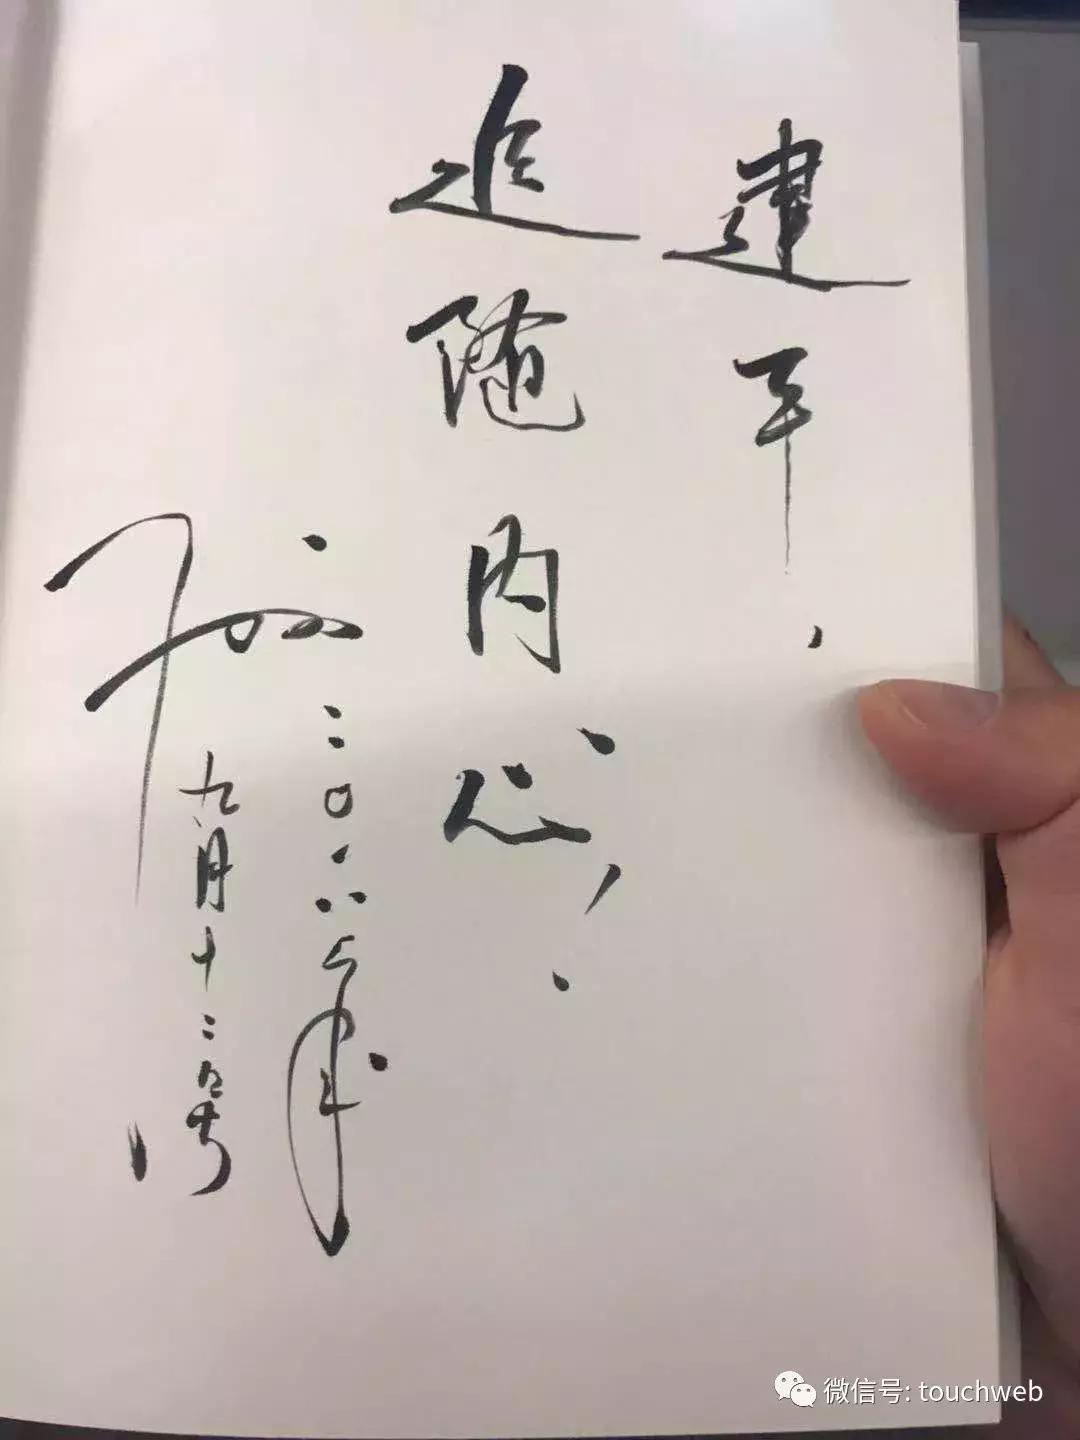 建平，
追随内心，
二〇一六年
九月十二
微信号: touchweb